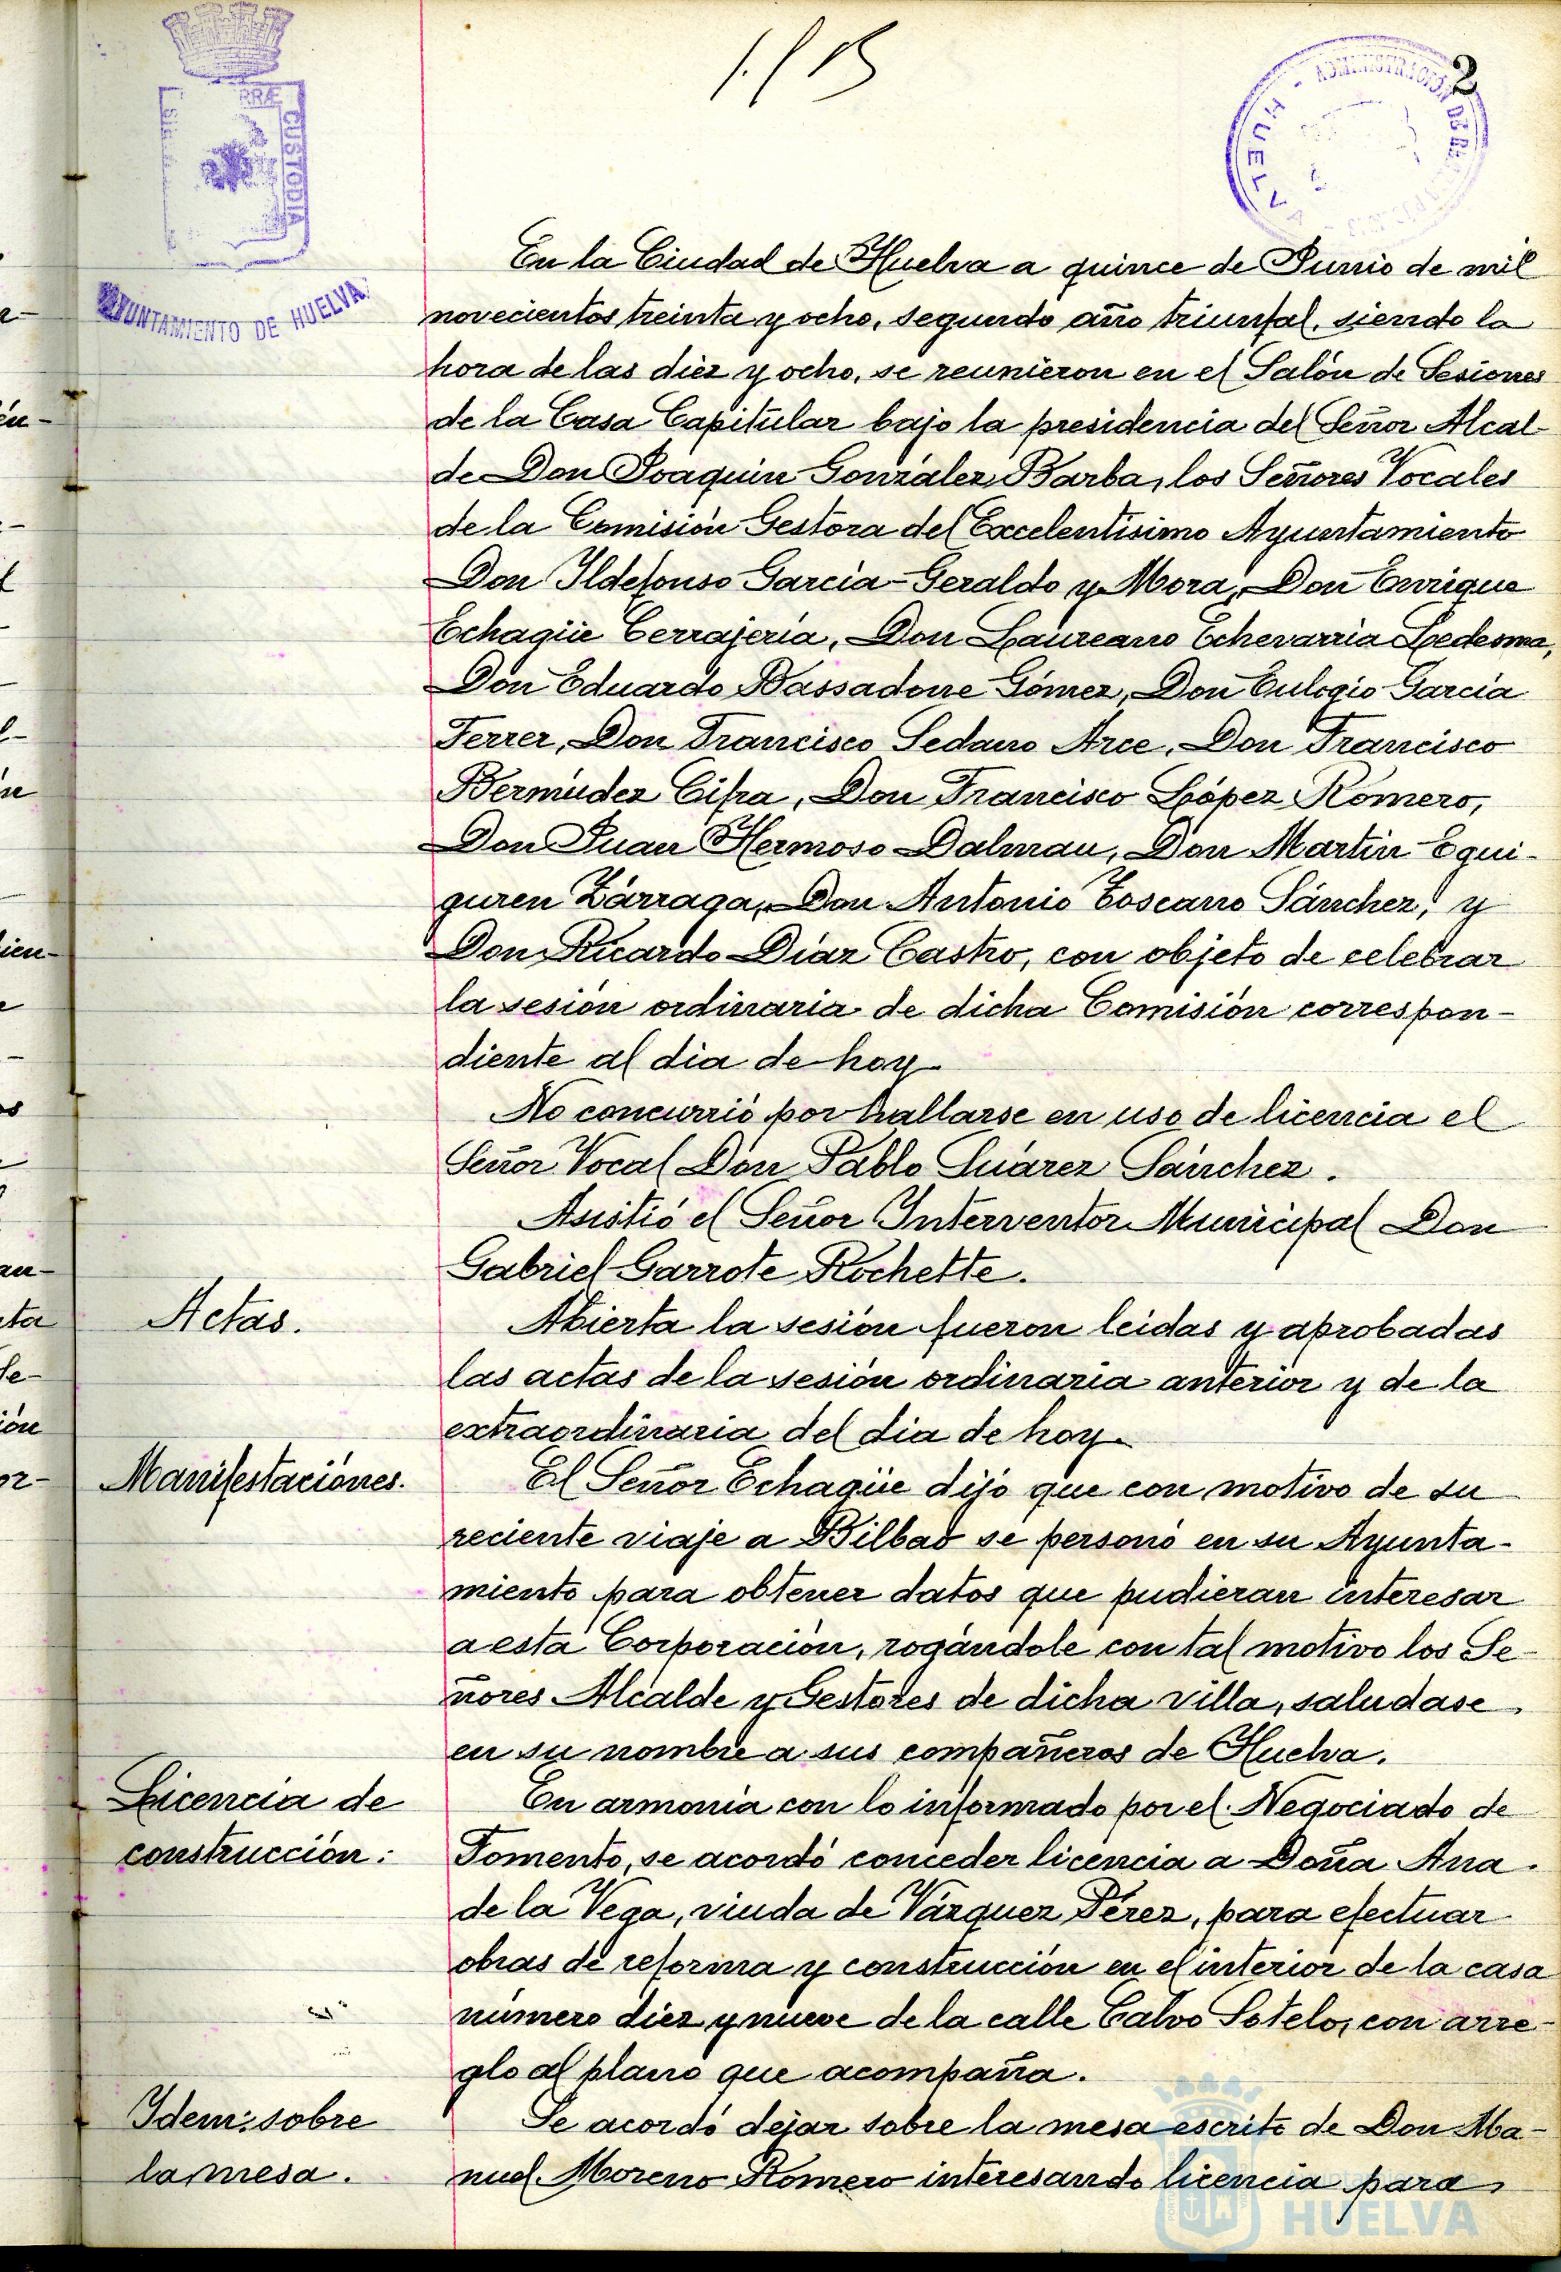 1/15
2
ADMINISTRACIÓN DE
HUELVA
RRÆ
CUSTODIA
AYUNTAMIENTO DE HUELVA
En la Ciudad de Huelva a quince de Junio de mil
novecientos treinta y ocho, segundo año triunfal, siendo la
hora de las diez y ocho, se reunieron en el Salón de Sesiones
de la Casa Capitular bajo la presidencia del Señor Alcal-
de Don Joaquin González Barba, los Señores Vocales
de la Comisión Gestora del Excelentísimo Ayuntamiento
Don Ildefonso García-Geraldo y Mora, Don Enrique
Echagüe Cerrajería, Don Laureano Echevarria Ledesma,
Don Eduardo Bassadone Gómez, Don Eulogio García
Ferrer, Don Francisco Sedano Arce, Don Francisco
Bermúdez Cifra, Don Francisco López Romero,
Don Juan Hermoso Dalmau, Don Martin Egui-
guren Zárraga, Don Antonio Toscano Sánchez, y
Don Ricardo Díaz Castro, con objeto de celebrar
la sesión ordinaria de dicha Comisión correspon-
diente al dia de hoy.
No concurrió por hallarse en uso de licencia el
Señor Vocal Don Pablo Suárez Sánchez.
Asistió el Señor Interventor Municipal Don
Gabriel Garrote Rochette.
Actas.
Abierta la sesión fueron leidas y aprobadas
las actas de la sesión ordinaria anterior y de la
extraordinaria del dia de hoy.
Manifestaciónes.
El Señor Echagüe dijo que con motivo de su
reciente viaje a Bilbao se personó en su Ayunta-
miento para obtener datos que pudieran interesar
a esta Corporación, rogándole con tal motivo los Se-
ñores Alcalde y Gestores de dicha villa, saludase
en su nombre a sus compañeros de Huelva.
Licencia de
construcción:
En armonia con lo informado por el Negociado de
Fomento, se acordó conceder licencia a Doña Ana
de la Vega, viuda de Vázquez Pérez, para efectuar
obras de reforma y construcción en el interior de la casa
número diez y nueve de la calle Calvo Sotelo, con arre-
glo al plano que acompaña.
Idem: sobre
la mesa.
Se acordó dejar sobre la mesa escrito de Don Ma-
nuel Moreno Romero interesando licencia para
HUELVA